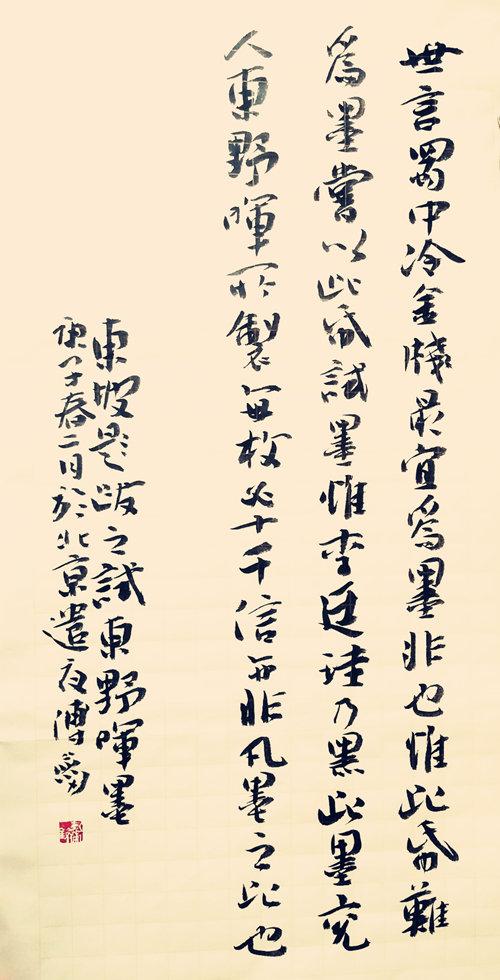 世言蜀中冷金牋最宜爲墨非也惟此帋難
爲墨嘗以此帋試墨惟李廷珪乃黑此墨兗
人東野暉所製每枚必十千信亦非凡墨之比也
東坡題跋之試東野暉墨
庚子春二月於北京遣夜傅